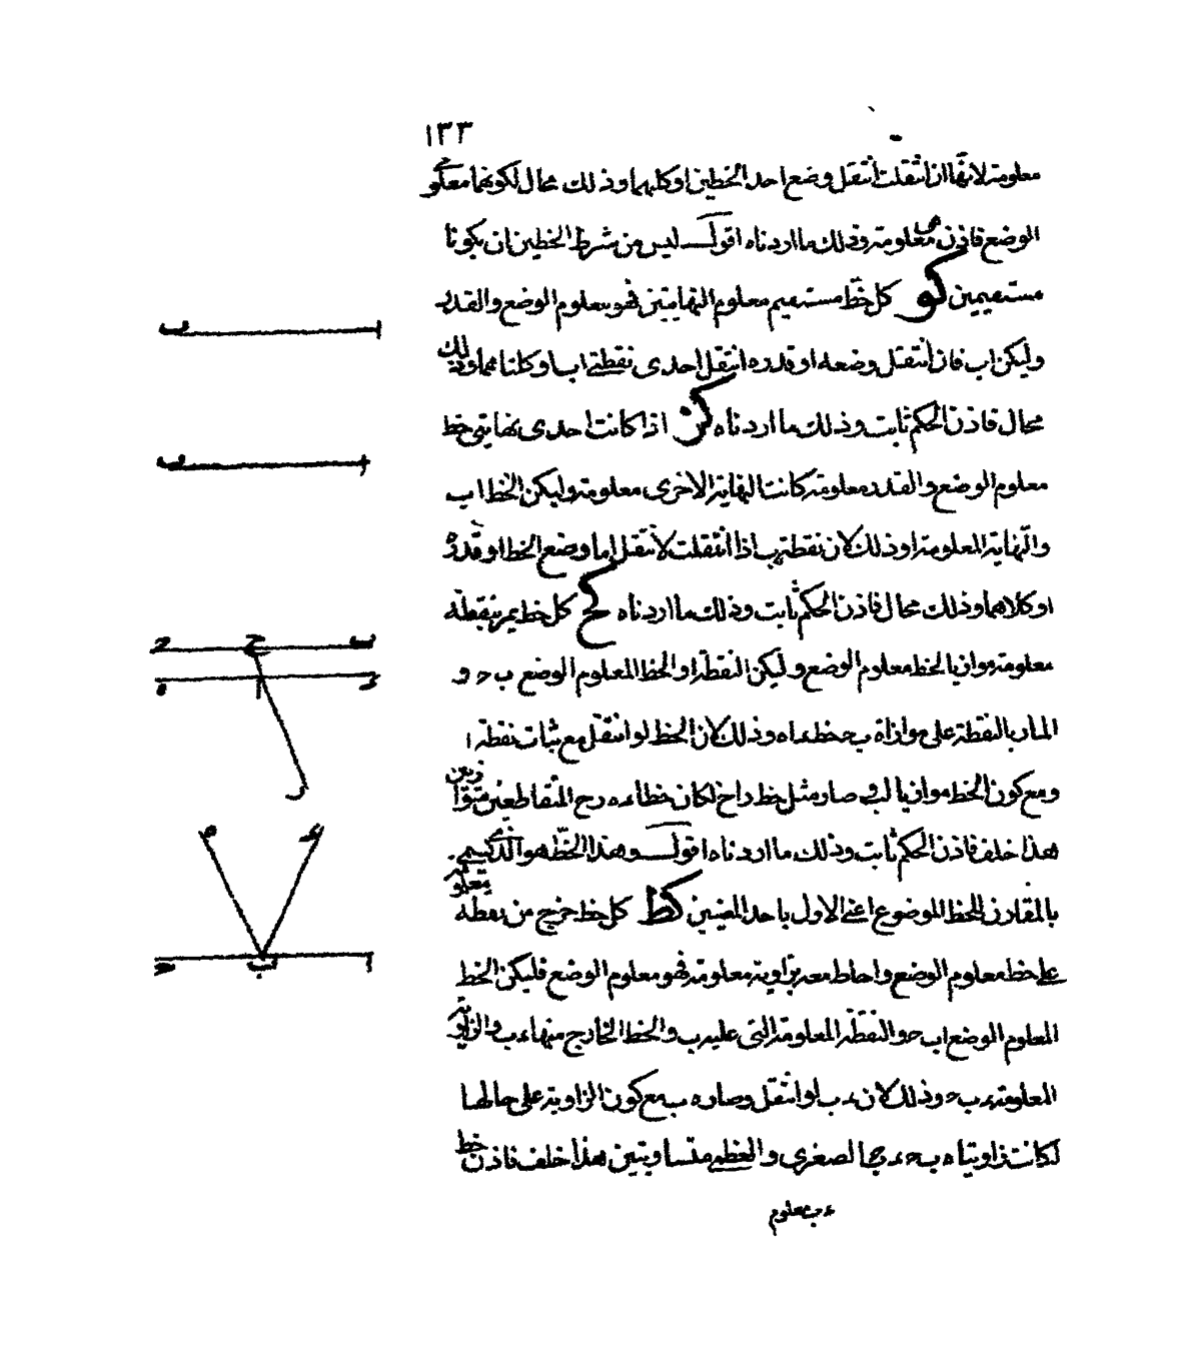 ١٣٣
معلومة لانها ان انتقلت انتقل وضع احد الخطين او كليهما وذلك محال لكونهما معلومى
الوضع فاذن هى معلومة وذلك ما اردناه اقول ليس من شرط الخطين ان يكونا
مستقيمين كو كل خط مستقيم معلوم النهايتين فهو معلوم الوضع والقدر
وليكن اب فان انتقل وضعه او قدره انتقل احدى نقطتى ا ب او كلتاهما وذلك
محال فاذن الحكم ثابت وذلك ما اردناه كز اذا كانت احدى نهايتى خط
معلوم الوضع والقدر معلومة كانت النهاية الاخرى معلومة وليكن الخط اب
والنهاية المعلومة ا وذلك لان نقطة ب اذا انتقلت لانتقل اما وضع الخط او قدره
او كلاهما وذلك محال فاذن الحكم ثابت وذلك ما اردناه كح كل خط يمر بنقطة
معلومة موازيا لخط معلوم الوضع وليكن النقطة ا والخط المعلوم الوضع ب ح و
المار بالنقطة على موازاة ب ح خط ء ا ه وذلك لان الخط لو انتقل مع ثبات نقطة ا
ومع كون الخط موازيا لـ ب ح صار مثل خط ر ا ح لكان خطا ء ه ر ح المتقاطعين متوازيين
هذا خلف فاذن الحكم ثابت وذلك ما اردناه اقول وهذا الخط هو الذى يسمى
بالمقارن للخط الموضوع اعنى الاول باحد المعنيين كط كل خط خرج من نقطة معلومة
على خط معلوم الوضع واحاط معه بزاوية معلومة فهو معلوم الوضع فليكن الخط
المعلوم الوضع اب ح والنقطة المعلومة التى عليه ب والخط الخارج منها ء ب والزاوية
المعلومة ء ب ح وذلك لان ء ب لو انتقل وصار ه ب مع كون الزاوية على حالها
لكانت زاويتا ه ب ح ء ب ح الصغرى والعظمى متساويتين هذا خلف فاذن خط
ء ب معلوم
ب ا
ب ا
ح ح ب
ه ا ء
ر
ه ء
ح ب ا